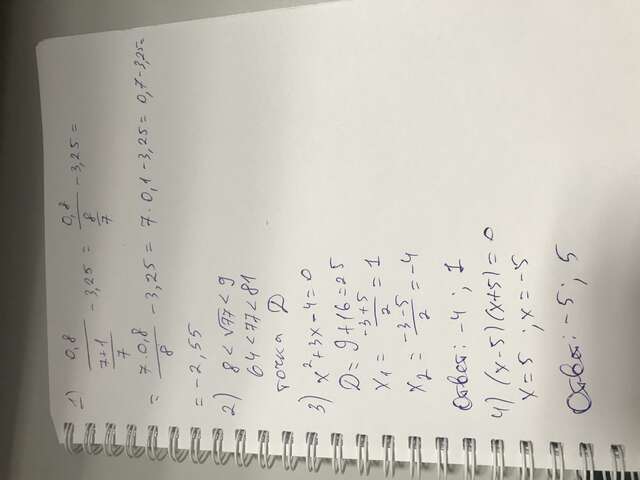 1) 0,8 / (7+1)/7 - 3,25 = 0,8 / 8/7 - 3,25 =
= 7·0,8 / 8 - 3,25 = 7·0,1 - 3,25 = 0,7 - 3,25 =
= -2,55
2) 8 < √77 < 9
64 < 77 < 81
точка D
3) x² + 3x - 4 = 0
D = 9 + 16 = 25
x₁ = -3+5 / 2 = 1
x₂ = -3-5 / 2 = -4
Ответ: -4 ; 1
4) (x-5)(x+5) = 0
x = 5 ; x = -5
Ответ: -5 ; 5